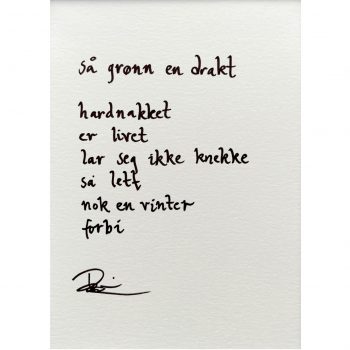 så grønn en drakt
hardnakket
er livet
lar seg ikke knekke
så lett
nok en vinter
forbi